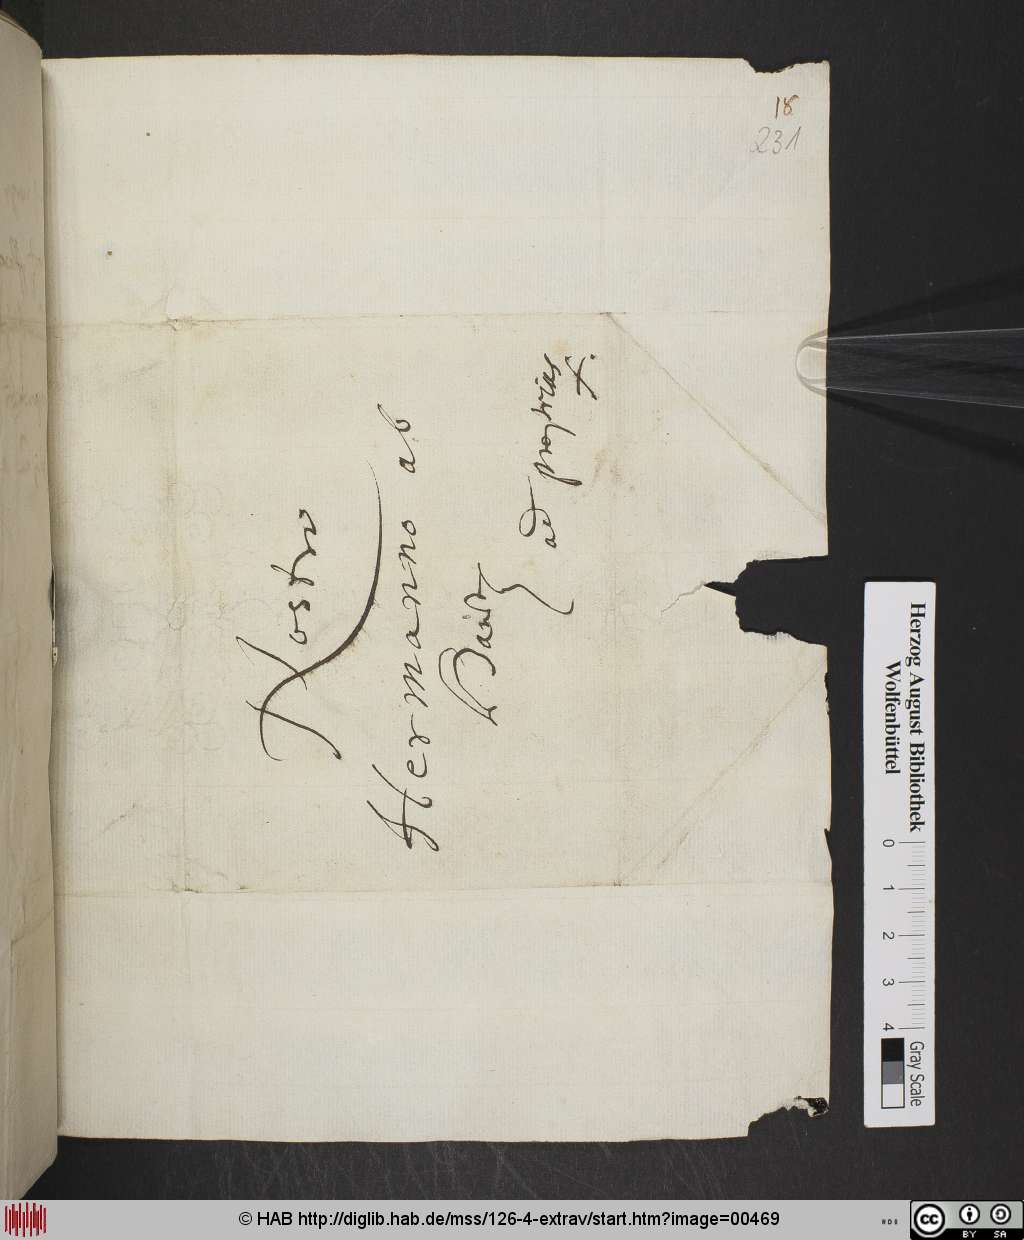 18
231
Nostro
Hermanno ab
ad proprias
Herzog August Bibliothek
Wolfenbüttel
0 1 2 3 4
Gray Scale
© HAB http://diglib.hab.de/mss/126-4-extrav/start.htm?image=00469
cc BY SA